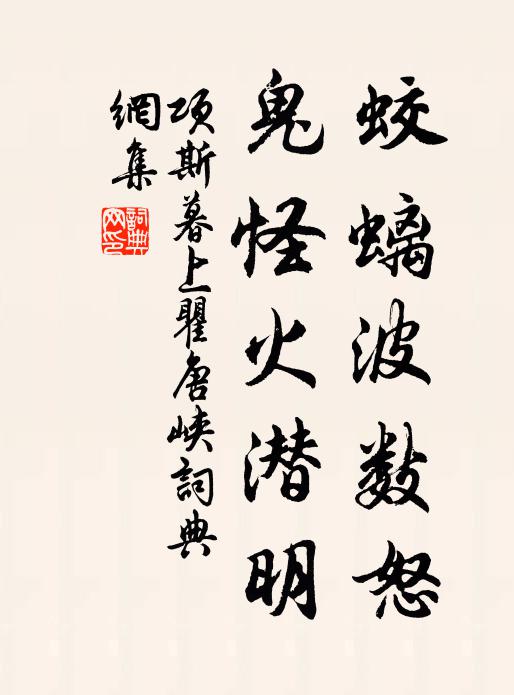 蛟螭波数怒
鬼怪火潜明
项斯暮上瞿唐峡词典
網集
詞典
网印